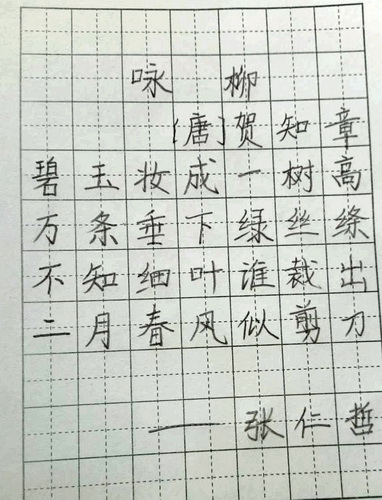 咏柳
[唐]贺知章
碧玉妆成一树高
万条垂下绿丝绦
不知细叶谁裁出
二月春风似剪刀
——张仁哲